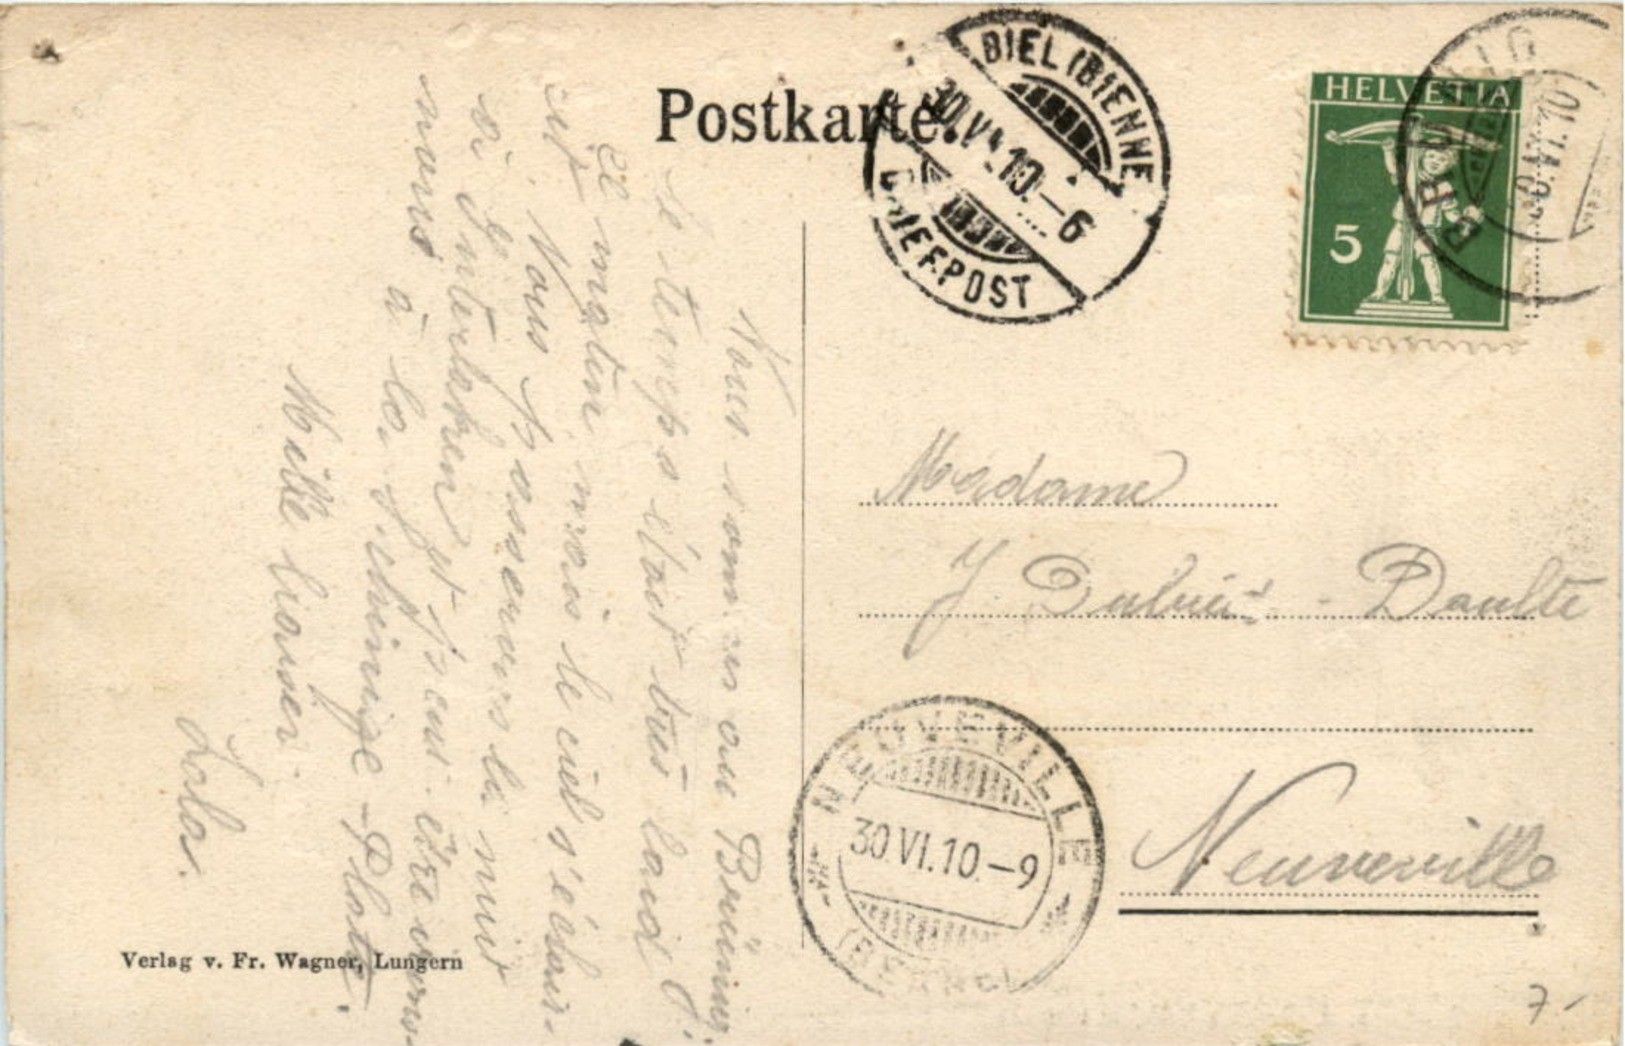 Postkarte.
BIEL (BIENNE)
30.VI.10.–6
BRIEFPOST
HELVETIA
5
Nous sommes au Brünig,
le temps était très laid
ce matin mais le ciel s'éclair-
cit. Nous passerons la nuit
à Interlaken et peut-être irons
nous à la Schinige-Platte.
Mille baisers.
Lola.
Madame
J. - Daulte
Neuveville
NEUVEVILLE
30.VI.10.–9
(BERNE)
Verlag v. Fr. Wagner, Lungern
7.-